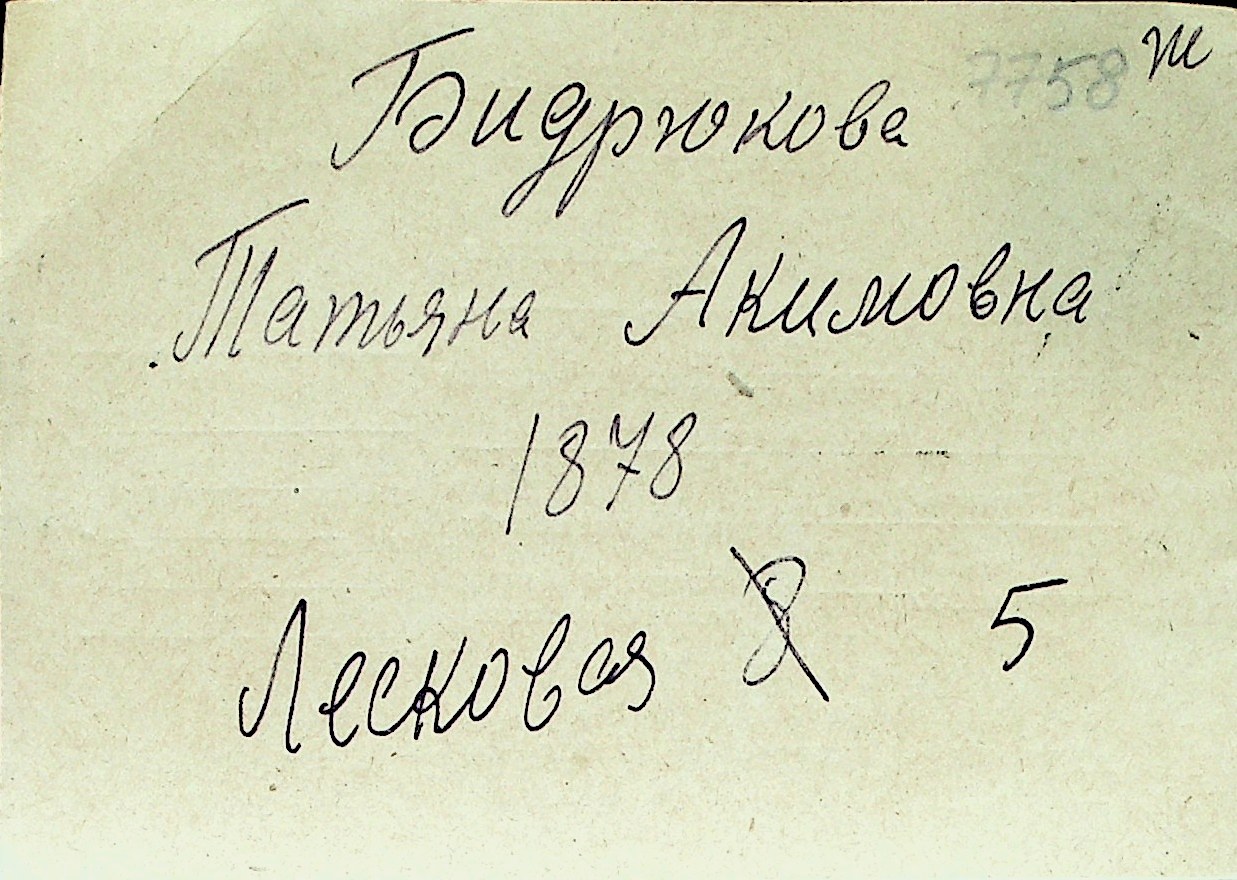 7758 ж
Бидрюкова
Татьяна Акимовна
1878
Лесковая 8 5